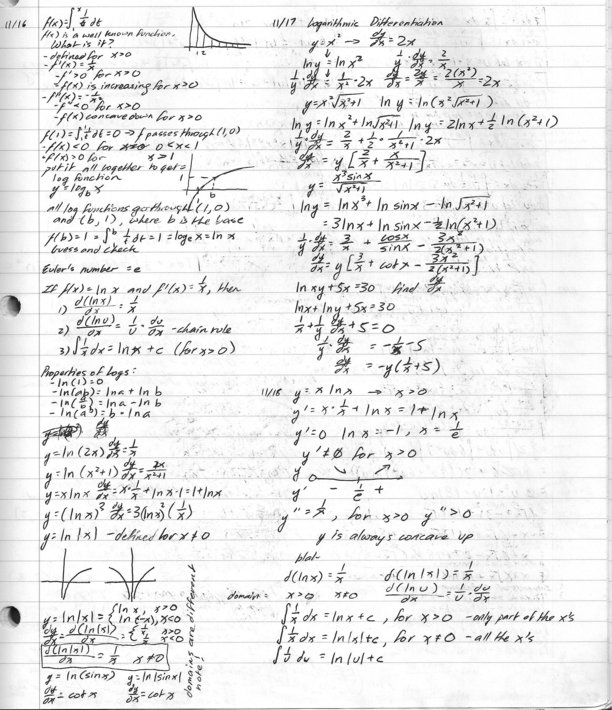 11/16 f(x) = ∫₁ˣ 1/t dt
f(x) is a well known function.
What is it?
- defined for x>0
- f'(x) = 1/x
- f' > 0 for x>0
- f(x) is increasing for x>0
- f''(x) = -1/x²
- f'' < 0 for x>0
- f(x) concave down for x>0
f(1) = ∫₁¹ 1/t dt = 0 → f passes through (1,0)
- f(x) < 0 for 0<x<1
- f(x) > 0 for x>1
put it all together to get a
log function
y = log_b x
1
b
1 2
all log functions go through (1,0)
and (b, 1), where b is the base
f(b) = 1 = ∫₁ᵇ 1/t dt = 1 = logₑ x = ln x
Guess and check
Euler's number = e
If f(x) = ln x and f'(x) = 1/x, then
1) d(ln x)/dx = 1/x
2) d(ln u)/dx = 1/u · du/dx - chain rule
3) ∫ 1/x dx = ln x + c (for x>0)
Properties of Logs:
- ln(1) = 0
- ln(ab) = ln a + ln b
- ln(a/b) = ln a - ln b
- ln(aᵇ) = b · ln a
y = ln(2x) dy/dx = 1/x
y = ln(x²+1) dy/dx = 2x/(x²+1)
y = x ln x dy/dx = x · 1/x + ln x · 1 = 1 + ln x
y = (ln x)³ dy/dx = 3(ln x)² (1/x)
y = ln |x| - defined for x ≠ 0
y = ln|x| = { ln x, x>0
ln(-x), x<0
dy/dx = d(ln|x|)/dx = { 1/x x>0
1/x x<0
d(ln|x|)/dx = 1/x x ≠ 0
domains are different
note!
y = ln(sin x) y = ln|sin x|
dy/dx = cot x dy/dx = cot x
11/17 Logarithmic Differentiation
y = x² → dy/dx = 2x
ln y = ln x² 1/y · dy/dx = 2/x
1/y · dy/dx = 1/x² · 2x dy/dx = 2y/x = 2(x²)/x = 2x
y = x²√(x²+1) ln y = ln(x²√(x²+1))
ln y = ln x² + ln√(x²+1) ln y = 2 ln x + 1/2 ln(x²+1)
1/y · dy/dx = 2/x + 1/2 · 1/(x²+1) · 2x
dy/dx = y [2/x + x/(x²+1)]
y = x³ sin x / √(x³+1)
ln y = ln x³ + ln sin x - ln √(x³+1)
= 3 ln x + ln sin x - 1/2 ln(x³+1)
1/y · dy/dx = 3/x + cos x/sin x - 3x²/2(x³+1)
dy/dx = y [3/x + cot x - 3x²/2(x³+1)]
ln xy + 5x = 30 find dy/dx
ln x + ln y + 5x = 30
1/x + 1/y · dy/dx + 5 = 0
1/y · dy/dx = -1/x - 5
dy/dx = -y(1/x + 5)
11/18 y = x ln x → x>0
y' = x · 1/x + ln x = 1 + ln x
y' = 0 ln x = -1, x = 1/e
y' ≠ ∅ for x>0
y
y' - 1/e +
y'' = 1/x, for x>0 y'' > 0
y is always concave up
blah
d(ln x) = 1/x d(ln|x|) = 1/x
domain: x>0 x≠0 d(ln u)/dx = 1/u · du/dx
∫ 1/x dx = ln x + c, for x>0 - only part of the x's
∫ 1/x dx = ln|x| + c, for x≠0 - all the x's
∫ 1/u du = ln|u| + c